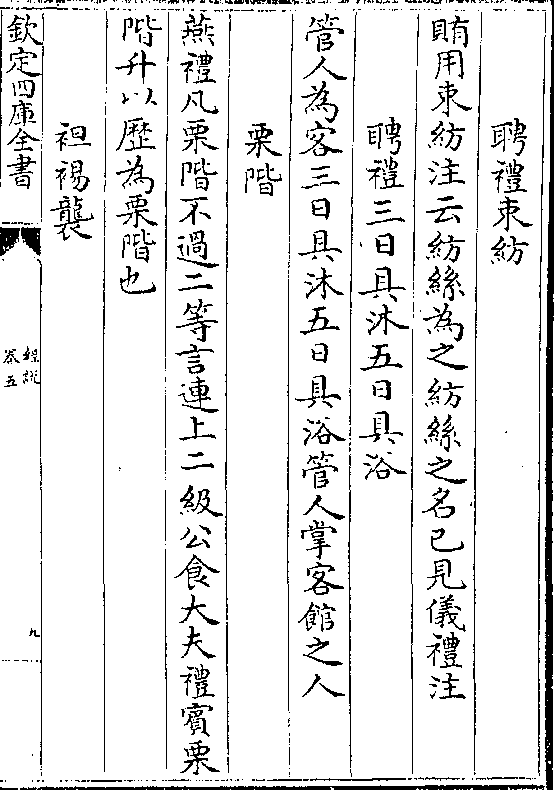 聘禮束紡
賄用束紡注云紡絲為之紡絲之名已見儀禮注
聘禮三日具沐五日具浴
管人為客三日具沐五日具浴管人掌客館之人
栗階
燕禮凡栗階不過二等言連上二級公食大夫禮賓栗
階升以歷為栗階也
袒裼襲
欽定四庫全書
經說
卷五
九